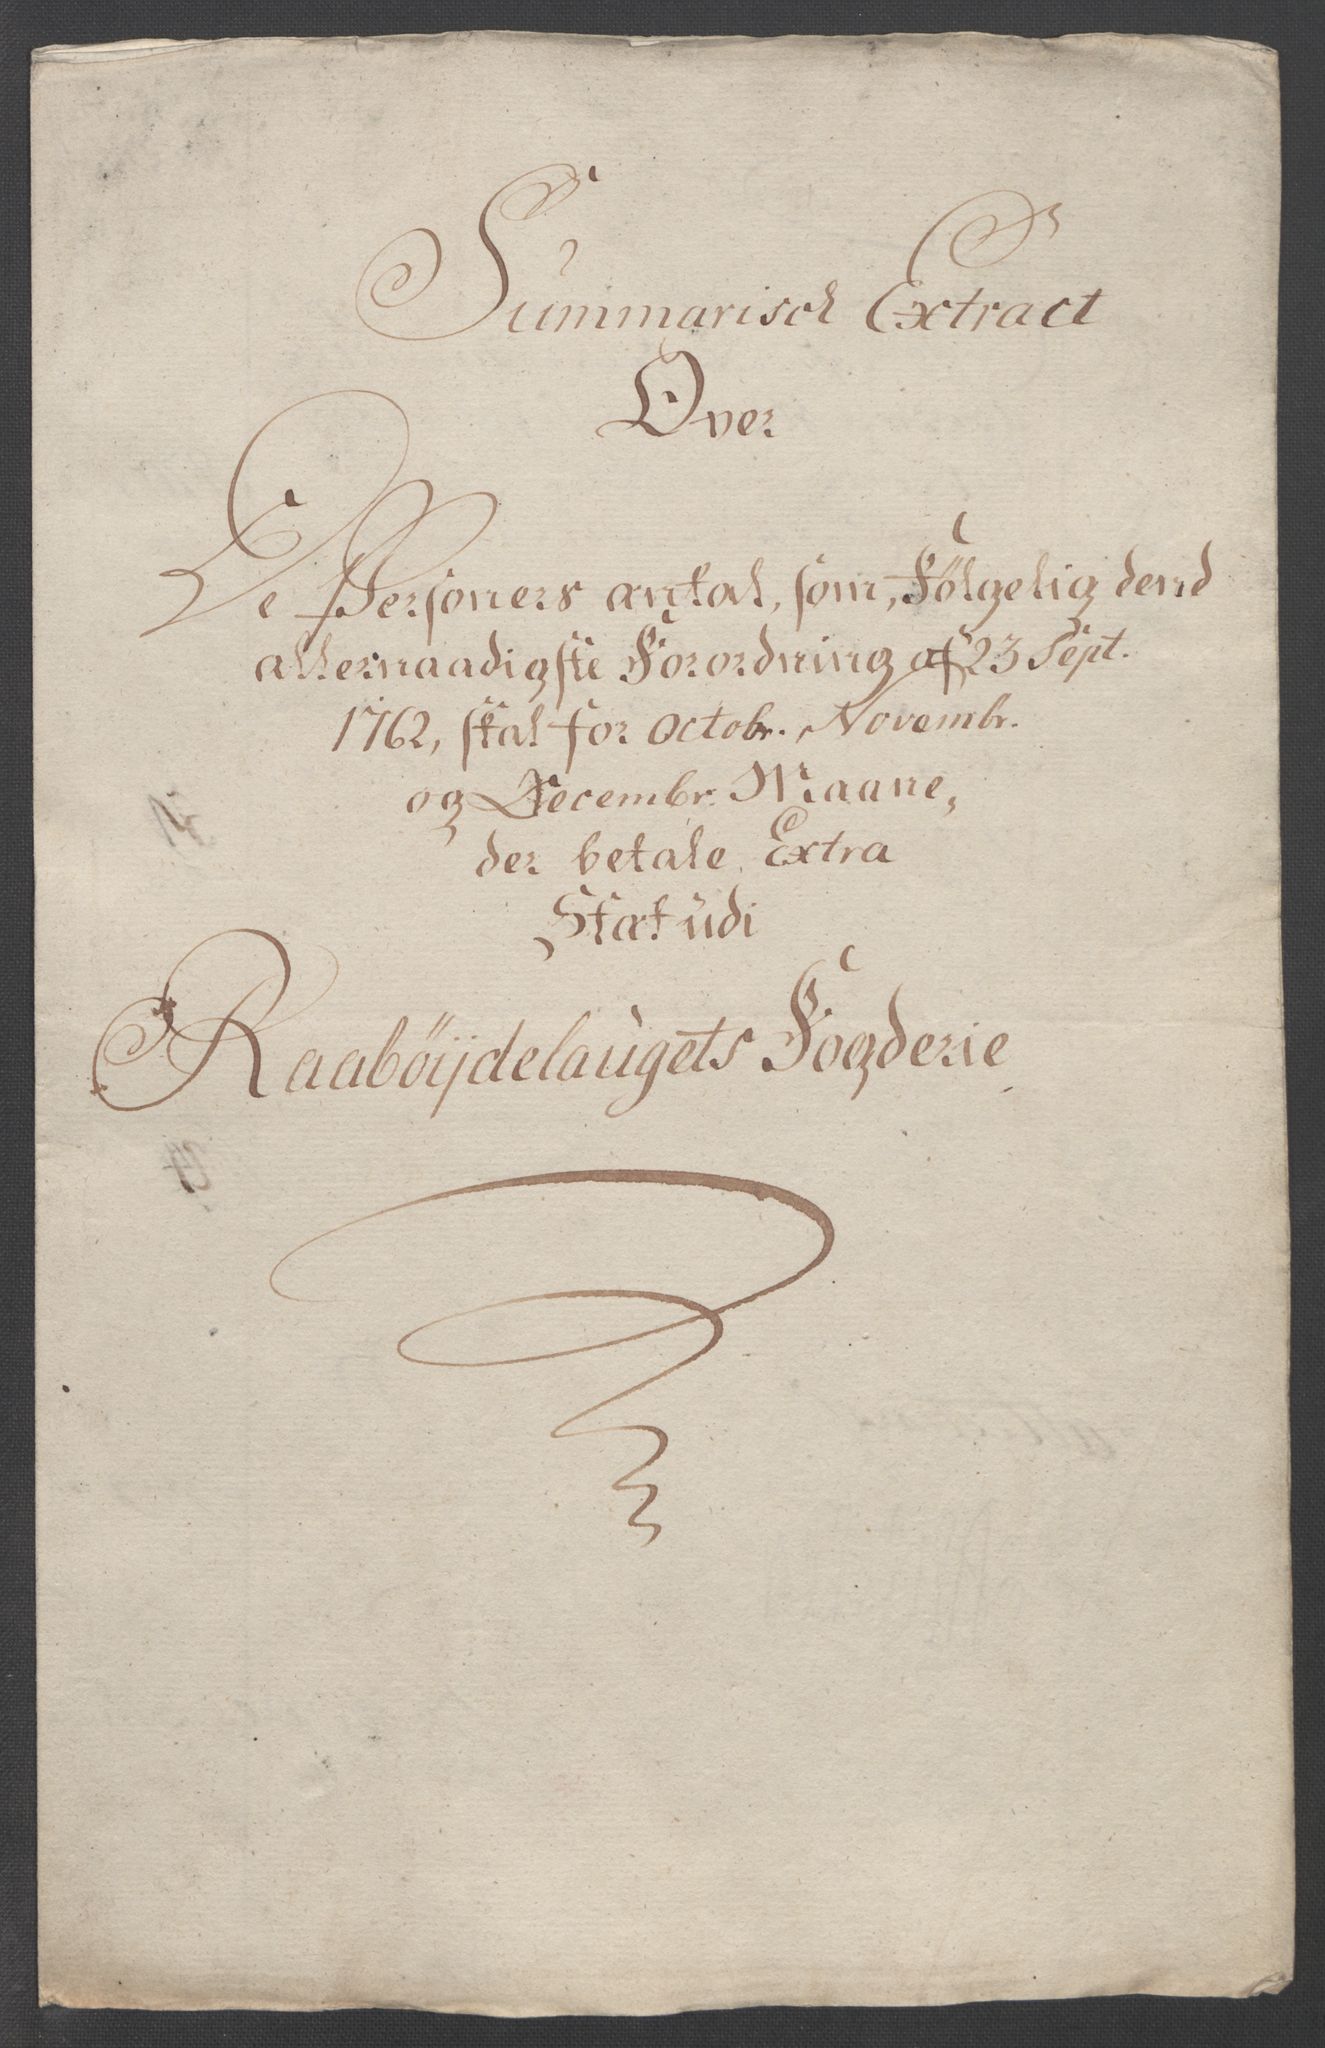 Summarisch Extract
Over
De Persohners antal, som, Fölgelig dend
allernaadigste Forordning af 23 Sept.
1762, skal for Octobr. Novembr.
og Decembr. Maane,
der betale Extra
Skat udi
Raaböijdelaugets Fogderie